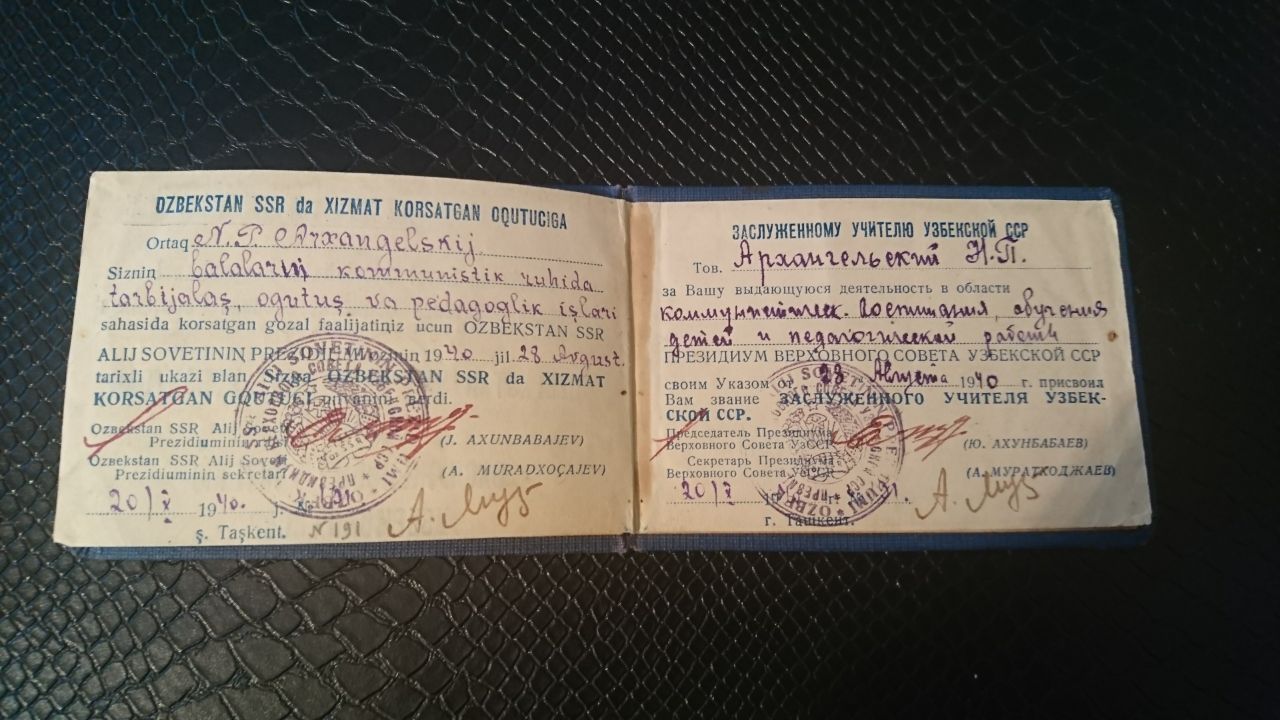 OZBEKSTAN SSR da XIZMAT KORSATGAN OQUTUCIGA
Ortaq N. P. Arxangelskij
Siznin balalarьn kommunistik ruhida
tarbijalaş, oqutuş va pedagoglik işlari
sahasida korsatgan gozal faalijatiniz ucun OZBEKSTAN SSR
ALIJ SOVETININ PREZIDIUMI ozinin 1940 jil 28 Avgust
tarixli ukazi вlan Sizga OZBEKSTAN SSR da XIZMAT
KORSATGAN OQUTUCI unvanini berdi.
Ozbekstan SSR Alij Soveti
Prezidiuminin
(J. AXUNBABAJEV)
Ozbekstan SSR Alij Soveti
Prezidiuminin sekretari
(A. MURADXOÇAJEV)
20/X 1940. j. №
ş. Taşkent. N 191
ЗАСЛУЖЕННОМУ УЧИТЕЛЮ УЗБЕКСКОЙ ССР
Тов. Архангельский Н.П.
за Вашу выдающуюся деятельность в области
коммунистическ. воспитания, обучения
детей и педагогической работы
ПРЕЗИДИУМ ВЕРХОВНОГО СОВЕТА УЗБЕКСКОЙ ССР
своим Указом от 28 Августа 1940 г. присвоил
Вам звание ЗАСЛУЖЕННОГО УЧИТЕЛЯ УЗБЕК-
СКОЙ ССР.
Председатель Президиума
Верховного Совета УзССР
(Ю. АХУНБАБАЕВ)
Секретарь Президиума
Верховного Совета УзССР
(А. МУРАТХОДЖАЕВ)
20/X
г. Ташкент.